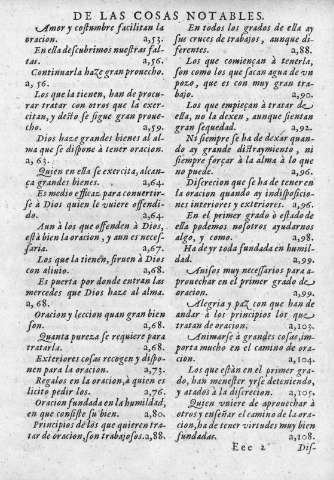 DE LAS COSAS NOTABLES.
Amor y costumbre facilitan la
oracion. a,53.
En ella descubrimos nuestras fal-
tas. a,56.
Continuarla haze gran prouecho.
a, 56.
Los que la tienen, han de procu-
rar tratar con otros que la exer-
citan, y desto se sigue gran proue-
cho. a,59.
Dios haze grandes bienes al al-
ma que se dispone à tener oracion.
a, 63.
Quien en ella se exercita, alcan-
ça grandes bienes. a,64.
Es medio efficaz para conuertir-
se à Dios quien le vuiere offendi-
do. a,64.
Aun à los que offenden à Dios,
està bien la oracion, y aun es neces-
saria. a,67.
Los que la tienen, siruen à Dios
con aliuio. a,68.
Es puerta por donde entran las
mercedes que Dios haze al alma.
a, 68.
Oracion y leccion quan gran bien
son. a,68.
Quanta pureza se requiere para
tratarla. a,68.
Exteriores cosas recogen y dispo-
nen para la oracion. a,73.
Regalos en la oracion, à quien es
licito pedir los. a,76.
Oracion fundada en la humildad,
en que consiste su bien. a,80.
Principios de los que quieren tra-
tar de oracion, son trabajosos. a,88.
En todos los grados de ella ay
sus cruces de trabajos, aunque di-
ferentes. a,88.
Los que comiençan à tenerla,
son como los que sacan agua de vn
pozo, que es con muy gran tra-
bajo. a,90.
Los que empieçan à tratar de
ella, no la dexen, aunque sientan
gran sequedad. a,92.
Ni siempre se ha de dexar quan-
do ay grande distraymiento, ni
siempre forçar à la alma à lo que
no puede. a,96.
Discrecion que se ha de tener en
la oracion quando ay indisposicio-
nes interiores y exteriores. a,96.
En el primer grado ò estado de
ella podemos nosotros ayudarnos
algo, y como. a,98.
Ha de yr toda fundada en humil-
dad. a,99.
Auisos muy necessarios para a-
prouechar en el primer grado de
oracion. a,99.
Alegria y paz con que han de
andar à los principios los que
tratan de oracion. a,103.
Animarse à grandes cosas, im-
porta mucho en el camino de ora-
cion. a,104.
Los que estàn en el primer gra-
do, han menester yrse deteniendo,
y atados à la discrecion. a,105.
Quien vuiere de aprouechar à
otros y enseñar el camino de la ora-
cion, ha de tener virtudes muy bien
fundadas. a,108.
Eee 2 Dis-